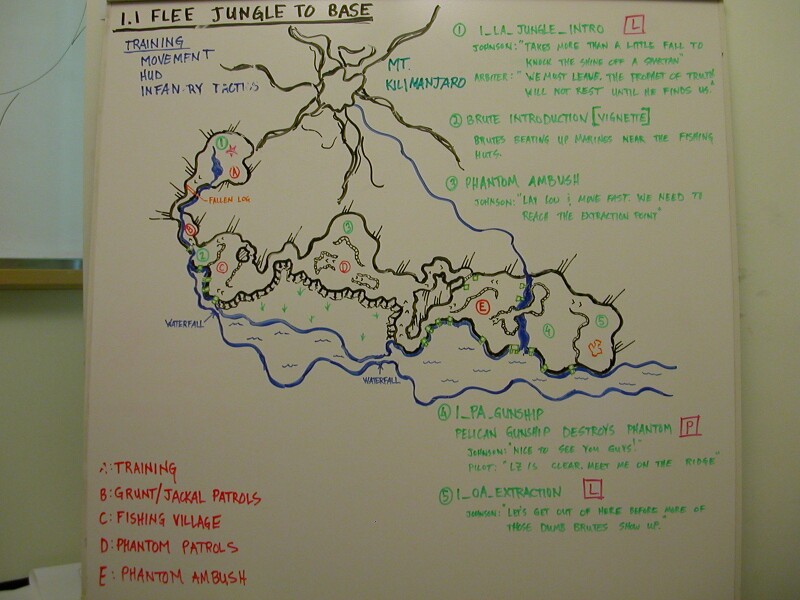 1.1 FLEE JUNGLE TO BASE
TRAINING
MOVEMENT
HUD
INFANTRY TACTICS
MT.
KILIMANJARO
① 1_LA_JUNGLE_INTRO [L]
JOHNSON: "TAKES MORE THAN A LITTLE FALL TO
KNOCK THE SHINE OFF A SPARTAN"
ARBITER: "WE MUST LEAVE. THE PROPHET OF TRUTH
WILL NOT REST UNTIL HE FINDS US."
② BRUTE INTRODUCTION [VIGNETTE]
BRUTES BEATING UP MARINES NEAR THE FISHING
HUTS.
③ PHANTOM AMBUSH
JOHNSON: "LAY LOW & MOVE FAST. WE NEED TO
REACH THE EXTRACTION POINT"
①
A
FALLEN LOG
B
②
C
③
D
E
④
⑤
WATERFALL
WATERFALL
④ 1_PA_GUNSHIP
PELICAN GUNSHIP DESTROYS PHANTOM [P]
JOHNSON: "NICE TO SEE YOU GUYS!"
PILOT: "LZ IS CLEAR, MEET ME ON THE RIDGE"
⑤ 1_OA_EXTRACTION [L]
JOHNSON: "LET'S GET OUT OF HERE BEFORE MORE OF
THOSE DUMB BRUTES SHOW UP."
A: TRAINING
B: GRUNT/JACKAL PATROLS
C: FISHING VILLAGE
D: PHANTOM PATROLS
E: PHANTOM AMBUSH